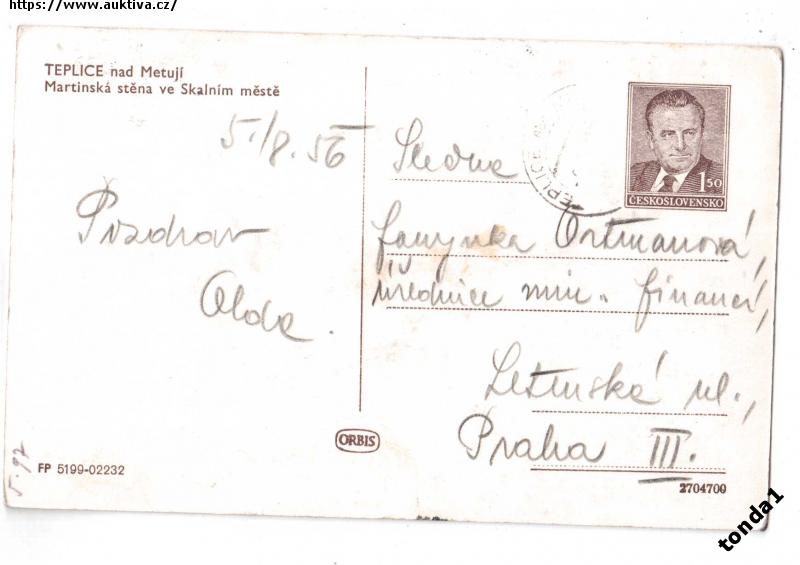 https://www.auktiva.cz/
TEPLICE nad Metují
Martinská stěna ve Skalním městě
5./8. 56
Pozdrav
Olda.
1 50
ČESKOSLOVENSKO
TEPLICE
Slečna
Fanynka Ortmanová,
úřednice min. financí,
Letenská ul.,
Praha III.
ORBIS
FP 5199-02232
2704700
tonda1